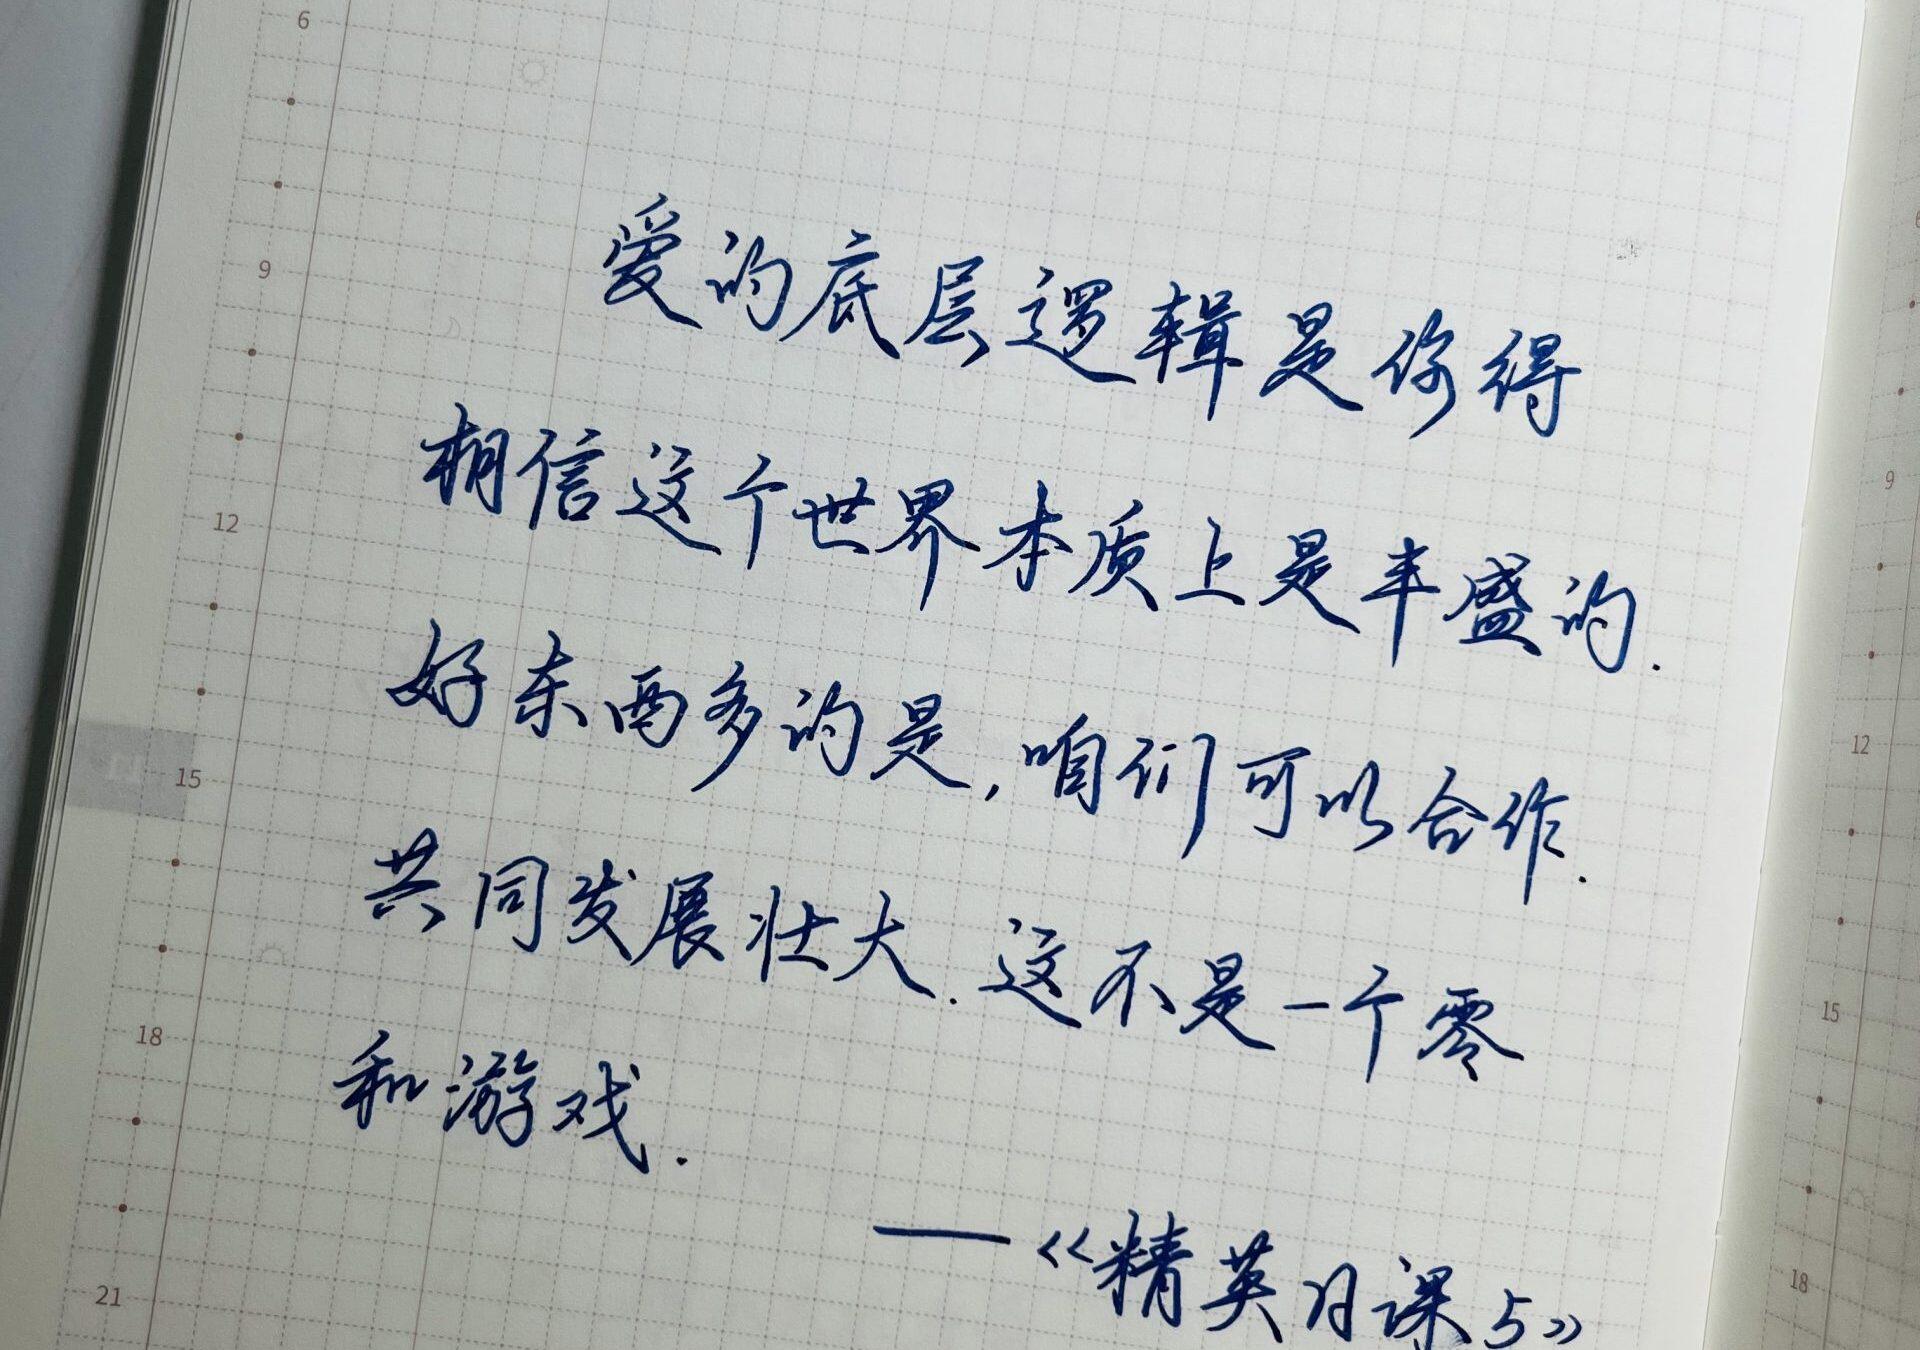 6
爱的底层逻辑是你得
9
相信这个世界本质上是丰盛的.
12
好东西多的是,咱们可以合作.
15
共同发展壮大.这不是一个零
18
和游戏.
——《精英日课5》
21
9
12
15
18